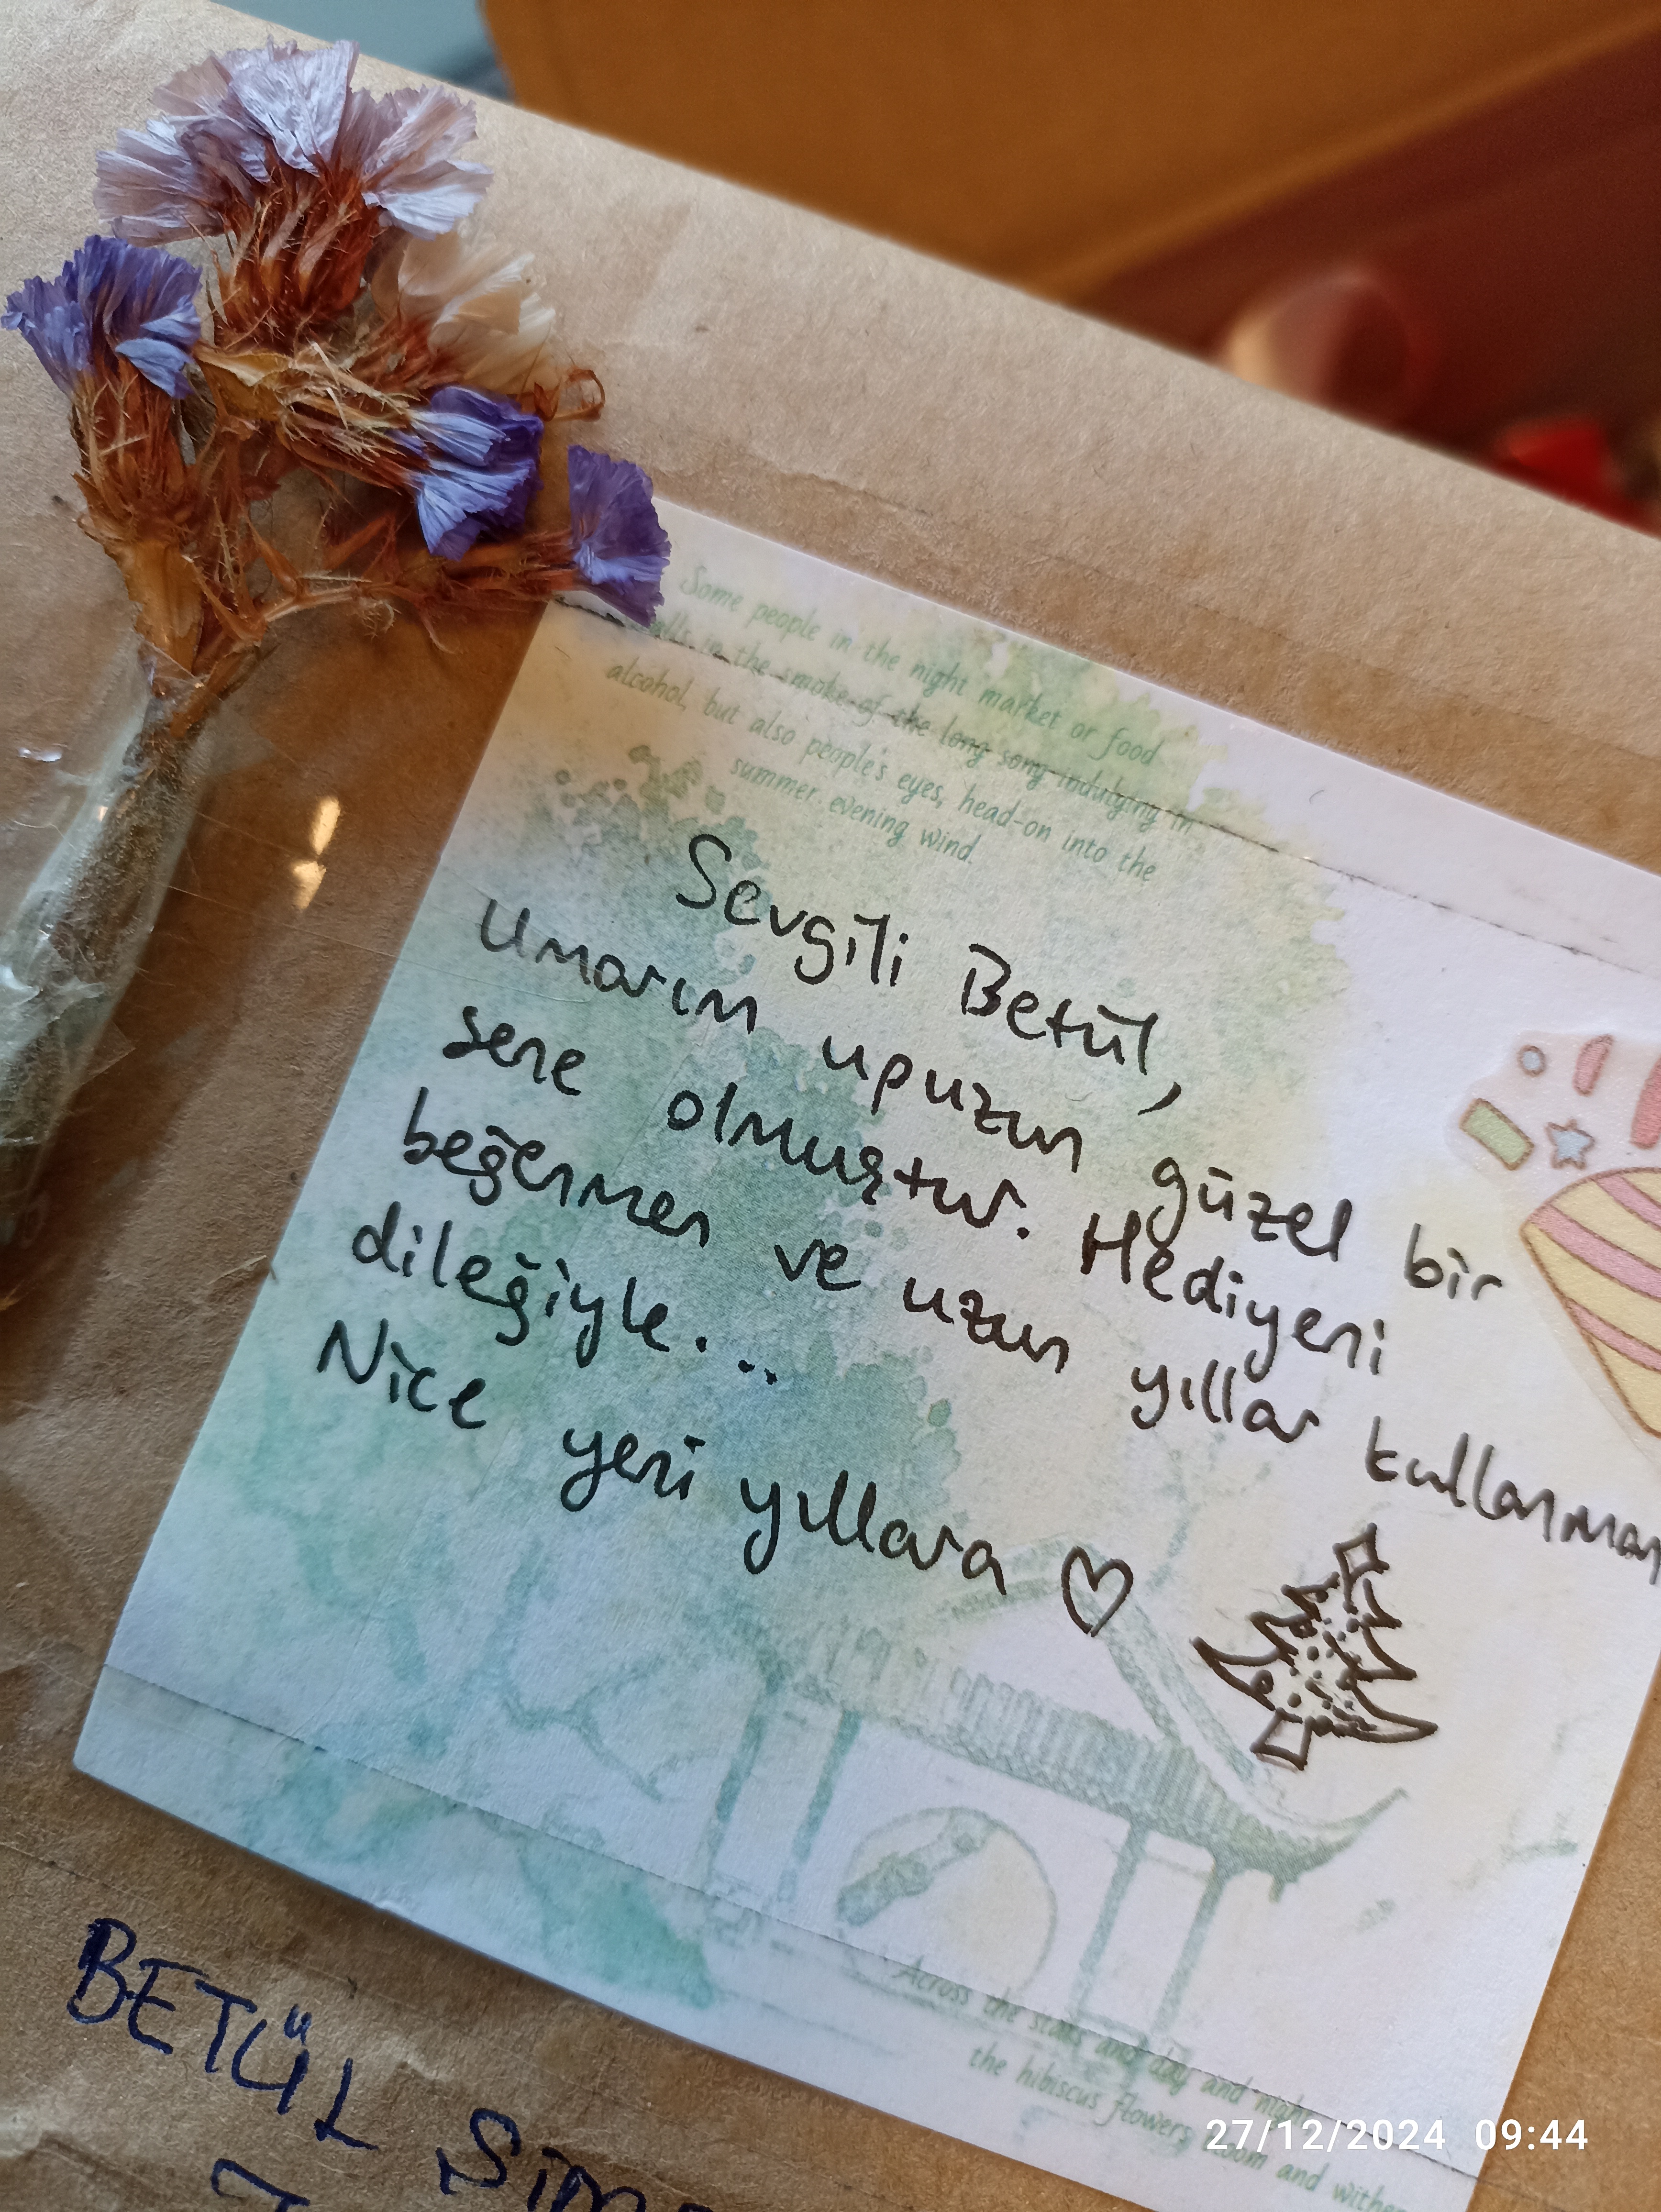 Some people in the night market or food
in the smoke of the long song indulging in
alcohol, but also people's eyes, head-on into the
summer evening wind.
Sevgili Betül,
Umarım upuzun güzel bir
sene olmuştur. Hediyeni
beğenmen ve uzun yıllar kullanman
dileğiyle...
Nice yeni yıllara
Across the stars and day and night
the hibiscus flowers bloom and wither
BETÜL
27/12/2024 09:44